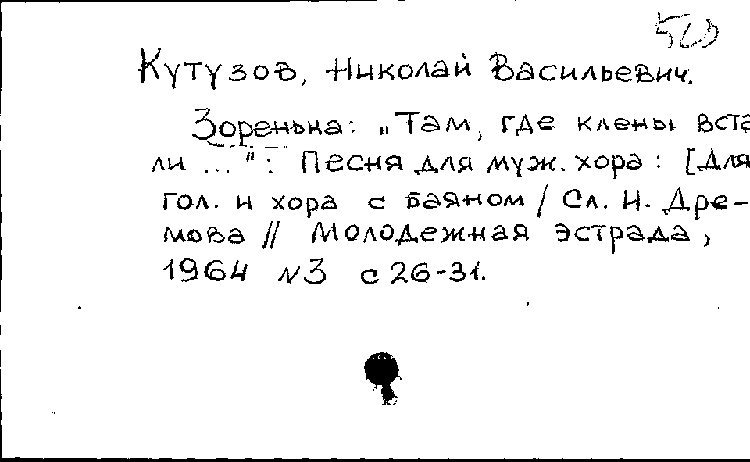 Кутузов, Николай Васильевич.
Зоренька: „Там, где клены вста
ли ...": Песня для муж. хора: [Для
гол. и хора с баяном / Сл. И. Дре-
мова // Молодежная эстрада,
1964 N3 с 26-31.